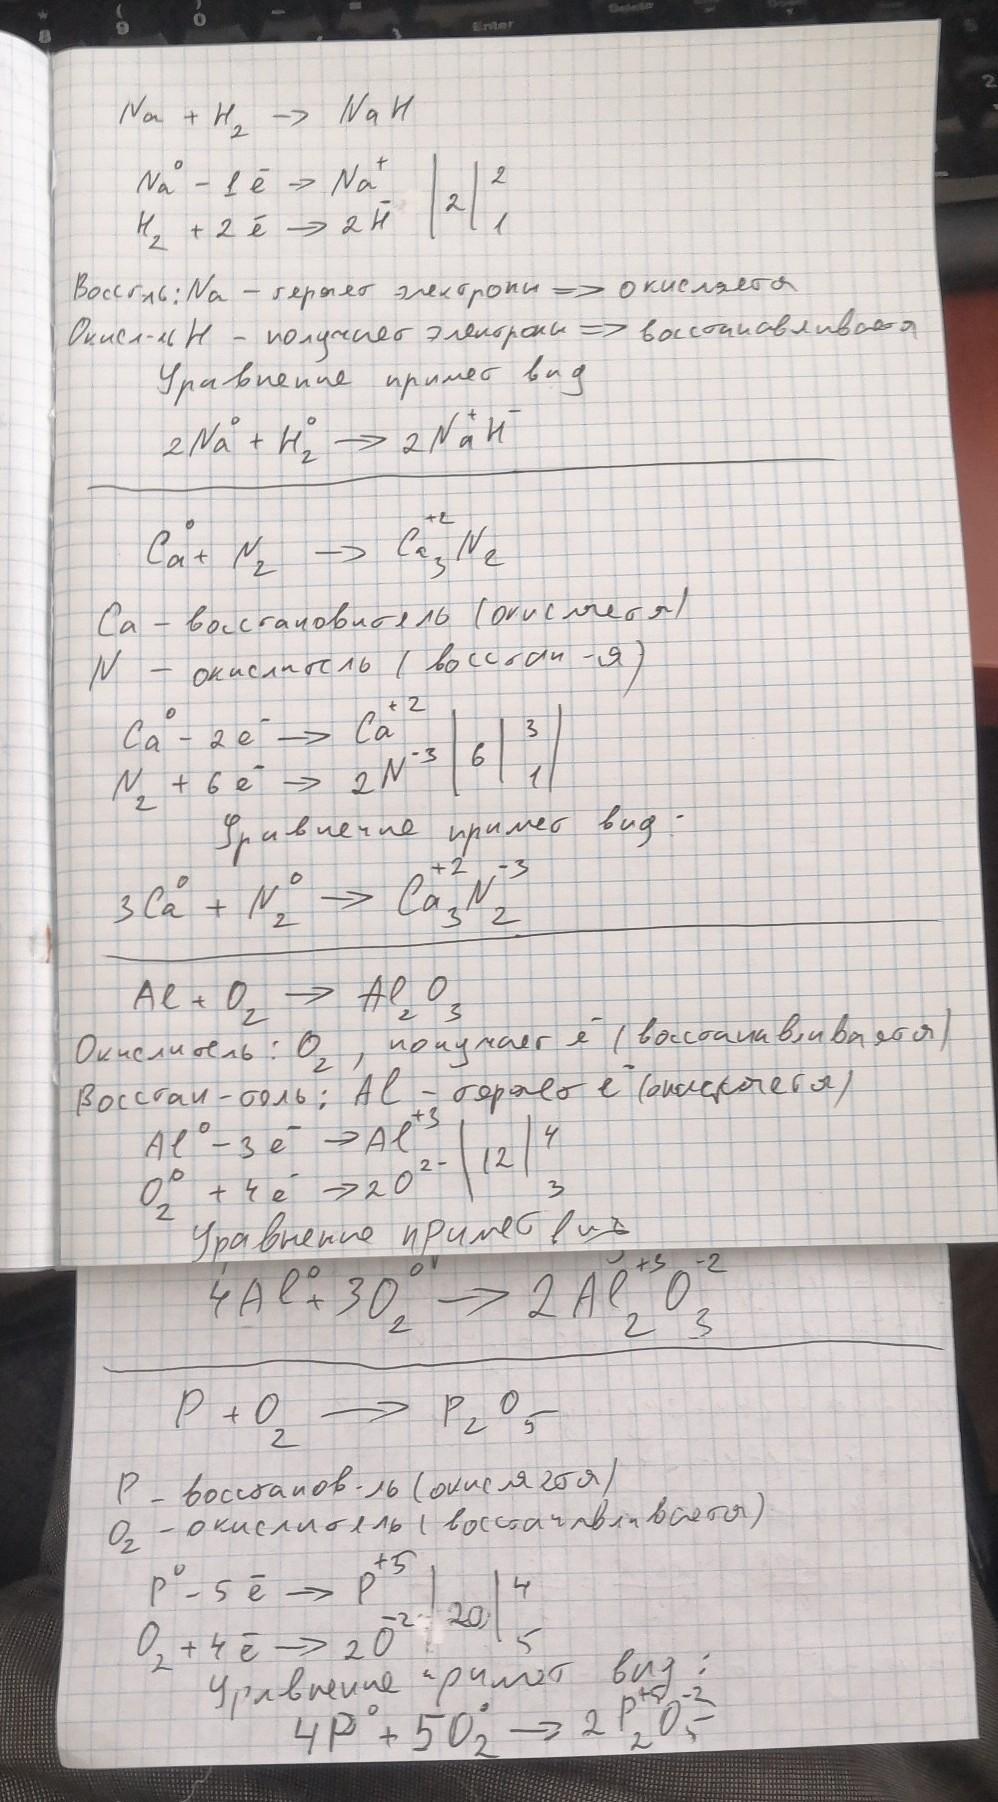 8
( 9
) 0
Enter
Delete
2
Na + H₂ → NaH
Na⁰ - 1ē → Na⁺ | 2 | 2
H₂ + 2ē → 2H⁻ | 1
Восст-ль: Na - теряет электроны => окисляется
Окисл-ль H - получает электроны => восстанавливается
Уравнение примет вид
2Na⁰ + H₂⁰ → 2Na⁺H⁻
Ca⁰ + N₂ → Ca₃⁺²N₂
Ca - восстановитель (окисляется)
N - окислитель (восстан-я)
Ca⁰ - 2e⁻ → Ca⁺² | 6 | 3 |
N₂ + 6e⁻ → 2N⁻³ | 1
Уравнение примет вид:
3Ca⁰ + N₂⁰ → Ca₃⁺²N₂⁻³
Al + O₂ → Al₂O₃
Окислитель: O₂, получает ē (восстанавливается)
Восстан-тель: Al - теряет ē (окисляется)
Al⁰ - 3e⁻ → Al⁺³ | 12 | 4
O₂⁰ + 4e⁻ → 2O²⁻ | 3
Уравнение примет вид
4Al⁰ + 3O₂⁰ → 2Al₂⁺³O₃⁻²
P + O₂ → P₂O₅
P - восстанов-ль (окисляется)
O₂ - окислитель (восстанавливается)
P⁰ - 5ē → P⁺⁵ | 20 | 4
O₂ + 4ē → 2O⁻² | 5
Уравнение примет вид:
4P⁰ + 5O₂⁰ → 2P₂⁺⁵O₅⁻²